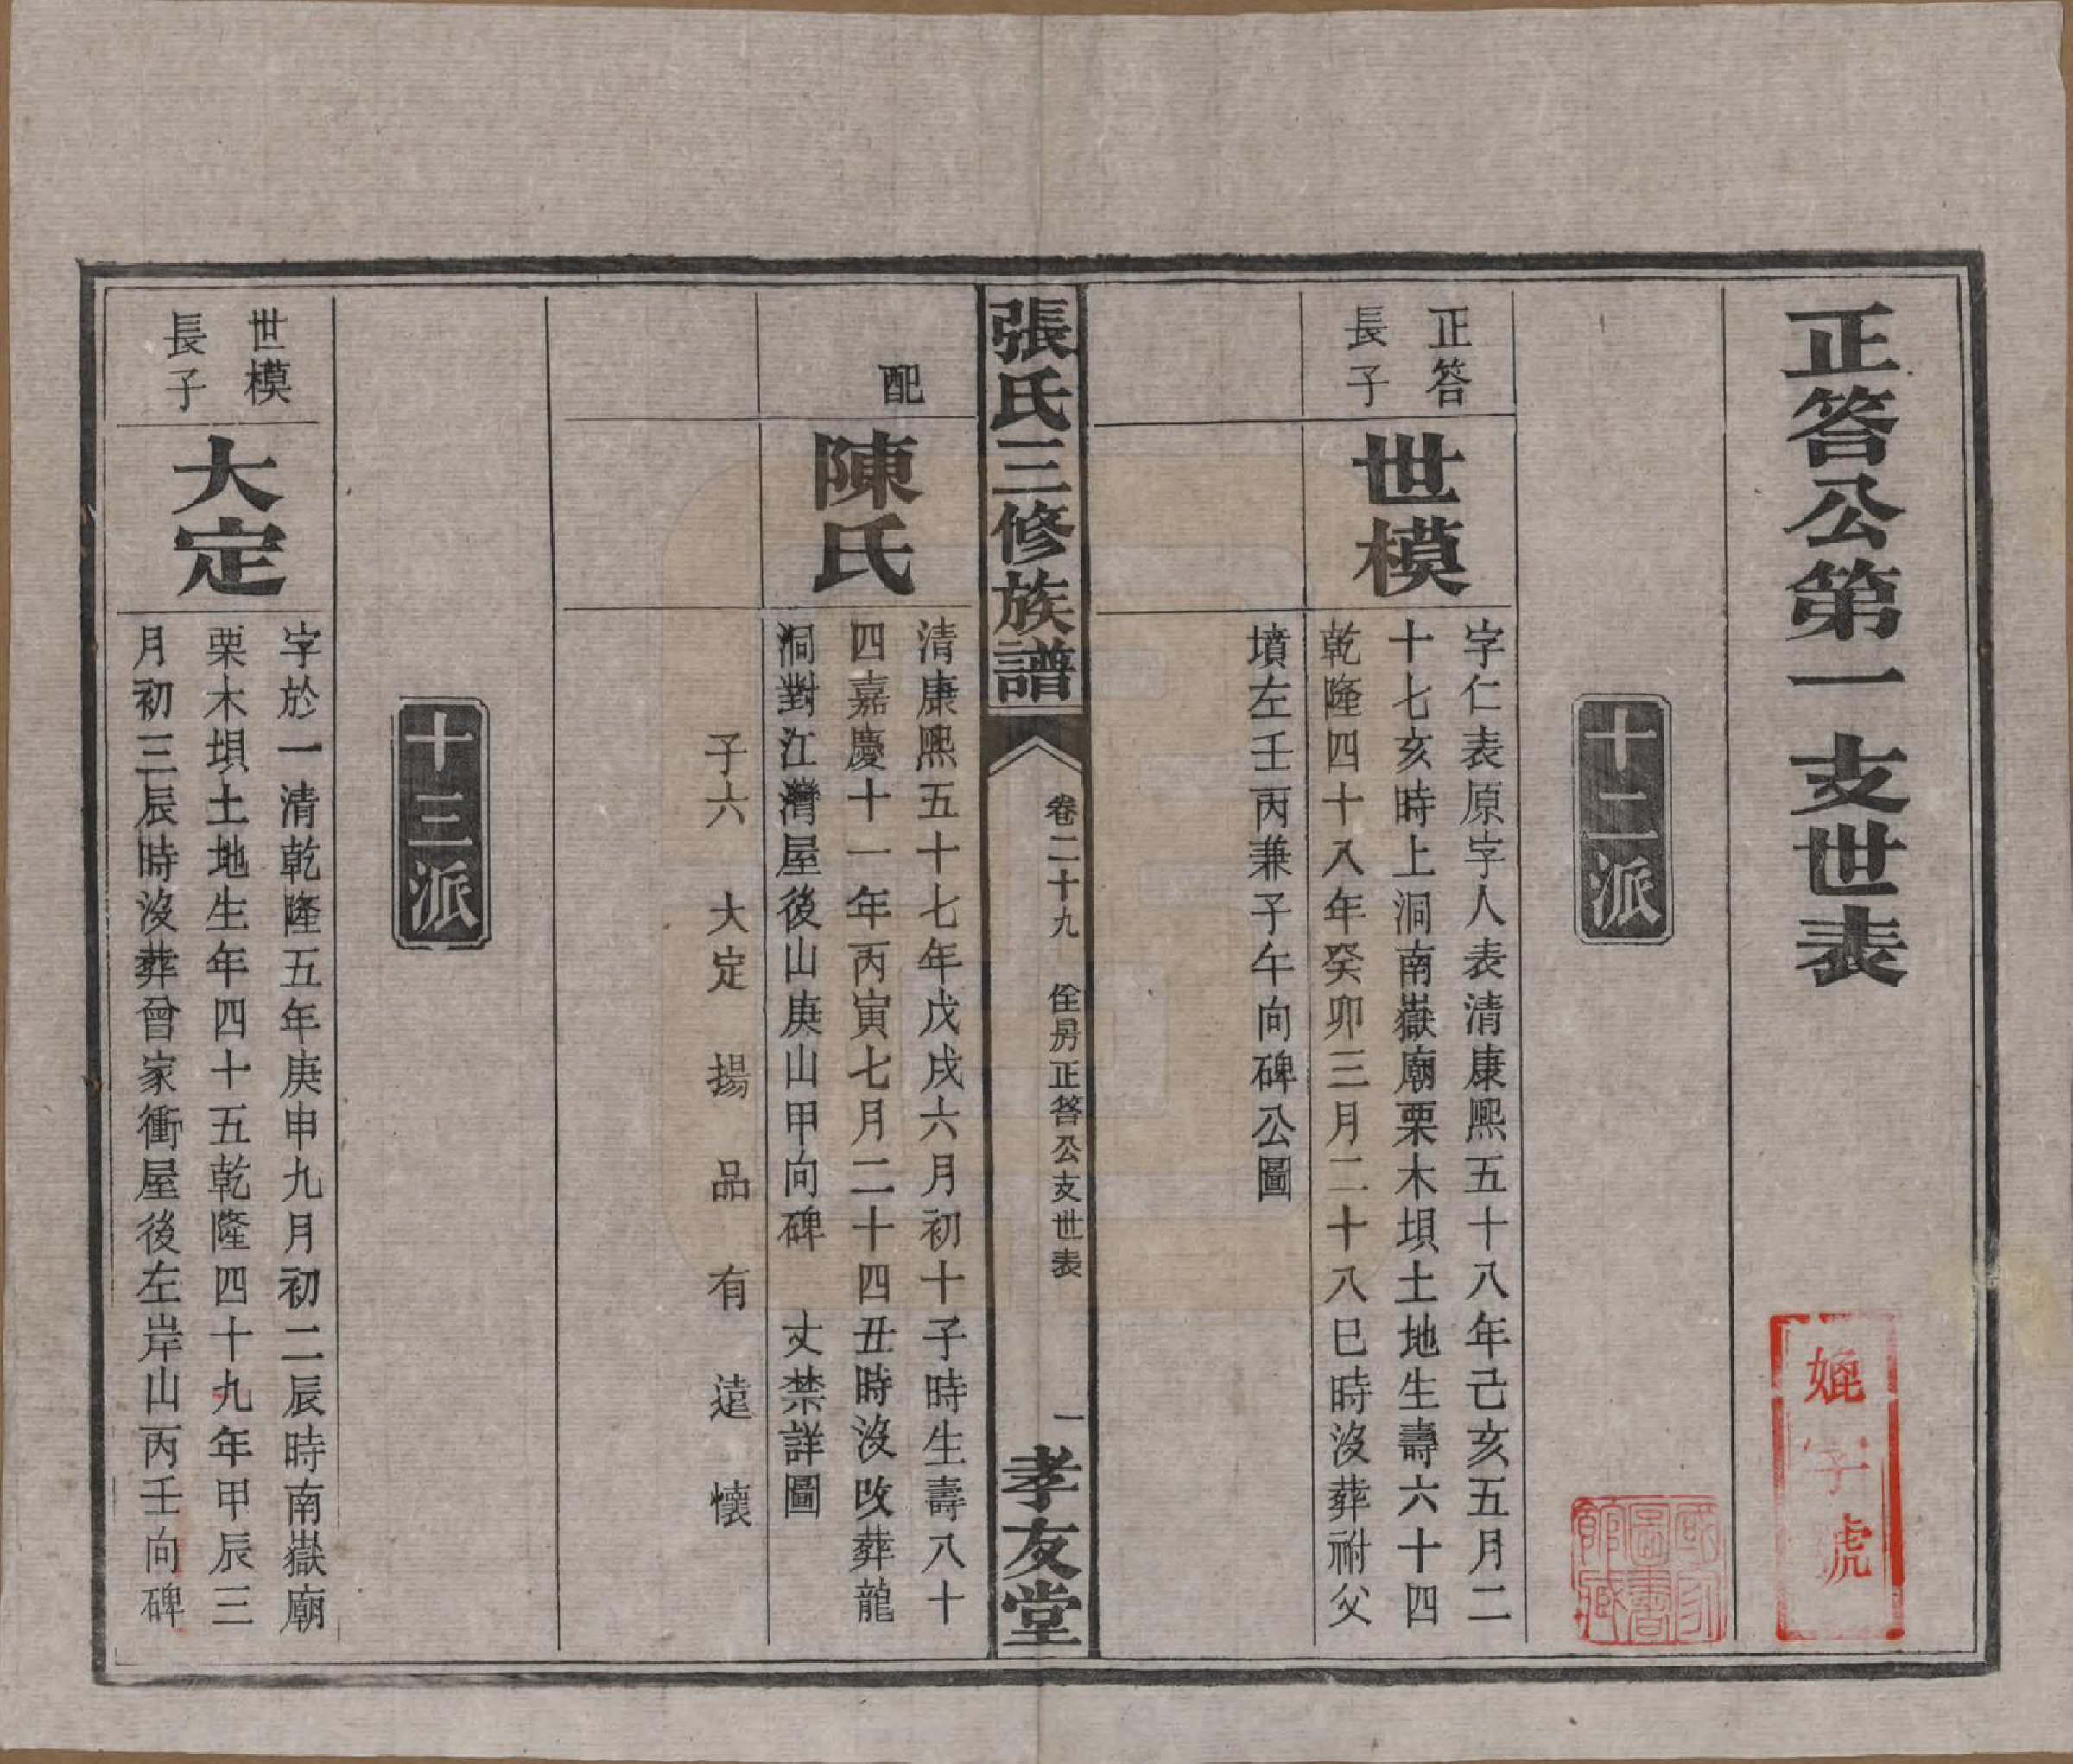 正答公第一支世表
十二派
正答
長子
世模
字仁表原字人表清康熙五十八年己亥五月二
十七亥時上洞南嶽廟栗木垻土地生壽六十四
乾隆四十八年癸卯三月二十八巳時沒葬祔父
墳左壬丙兼子午向碑公圖
張氏三修族譜
卷二十九
佺房正答公支世表
一
孝友堂
配
陳氏
清康熙五十七年戊戌六月初十子時生壽八十
四嘉慶十一年丙寅七月二十四丑時沒改葬龍
洞對江灣屋後山庚山甲向碑 丈禁詳圖
子六 大定 揚 品 有 遠 懷
十三派
世模
長子
大定
字於一清乾隆五年庚申九月初二辰時南嶽廟
栗木垻土地生年四十五乾隆四十九年甲辰三
月初三辰時沒葬曾家衝屋後左岸山丙壬向碑